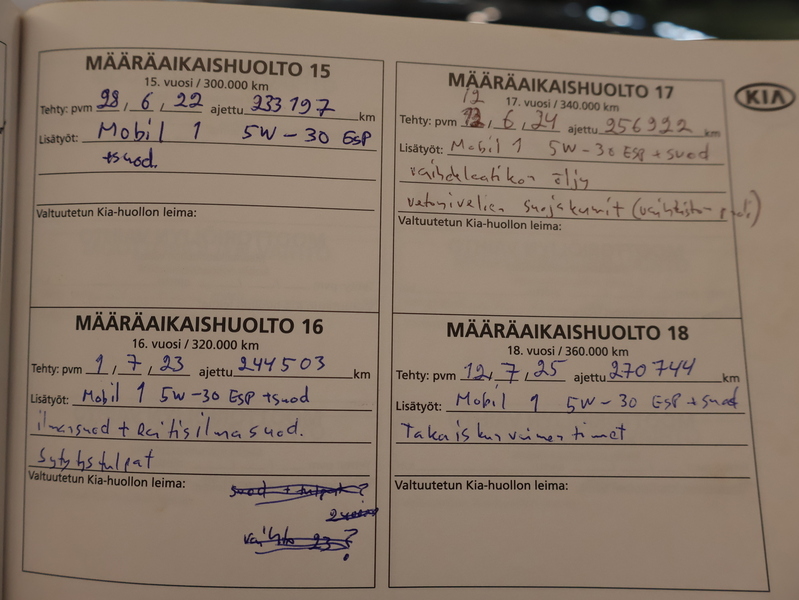 MÄÄRÄAIKAISHUOLTO 15
15. vuosi / 300.000 km
Tehty: pvm 28, 6, 22 ajettu 233197 km
Lisätyöt: Mobil 1 5W-30 ESP
+suod.
Valtuutetun Kia-huollon leima:
MÄÄRÄAIKAISHUOLTO 16
16. vuosi / 320.000 km
Tehty: pvm 1, 7, 23 ajettu 244503 km
Lisätyöt: Mobil 1 5W-30 ESP +suod
ilmansuod + raitisilmasuod.
Sytytystulpat
Valtuutetun Kia-huollon leima:
MÄÄRÄAIKAISHUOLTO 17
12
17. vuosi / 340.000 km
Tehty: pvm 6, 24 ajettu 256922 km
Lisätyöt: Mobil 1 5W-30 ESP + suod
vaihdelaatikon öljy
vetonivelien suojakumit (vaihteiston
Valtuutetun Kia-huollon leima:
KIA
MÄÄRÄAIKAISHUOLTO 18
18. vuosi / 360.000 km
Tehty: pvm 12, 7, 25 ajettu 270744 km
Lisätyöt: Mobil 1 5W-30 ESP + suod
Takaiskunvaimentimet
Valtuutetun Kia-huollon leima: